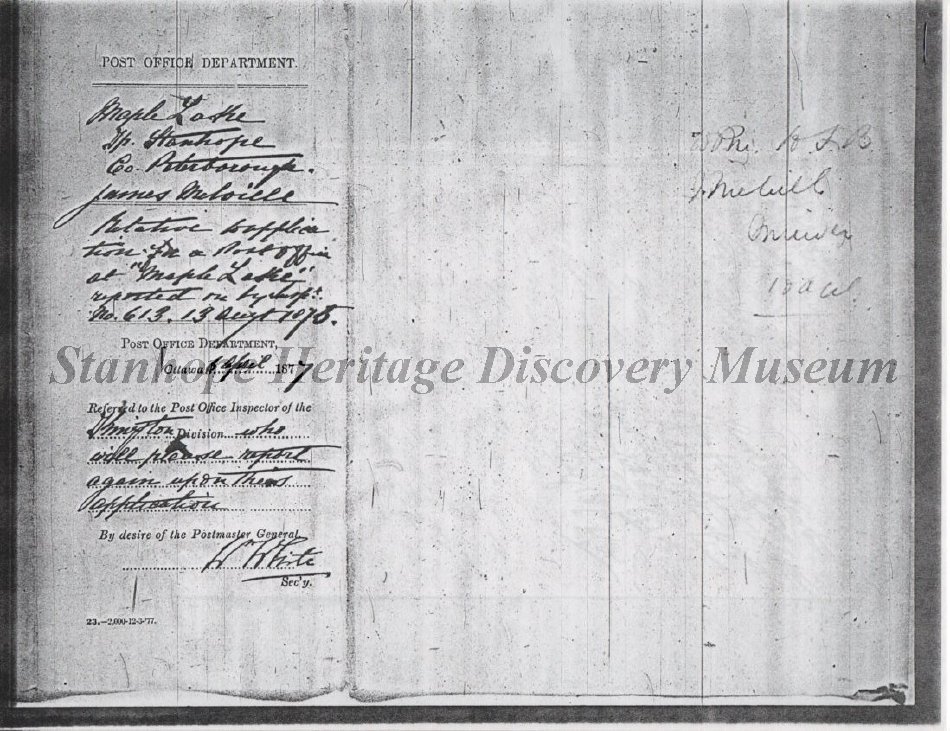 POST OFFICE DEPARTMENT.
Maple Lake
Tp. Stanhope
Co. Peterborough.
James Melville
Relative to applica
tion for a Post Office
at "Maple Lake"
reported on by Insp.
No. 613. 13 Augt 1875.
POST OFFICE DEPARTMENT,
Ottawa April 1877
Referred to the Post Office Inspector of the
Kingston Division who
will please report
again upon this
application
By desire of the Postmaster General,
W White
Sec'y.
23.—2,000-12-3-'77.
Stanhope Heritage Discovery Museum